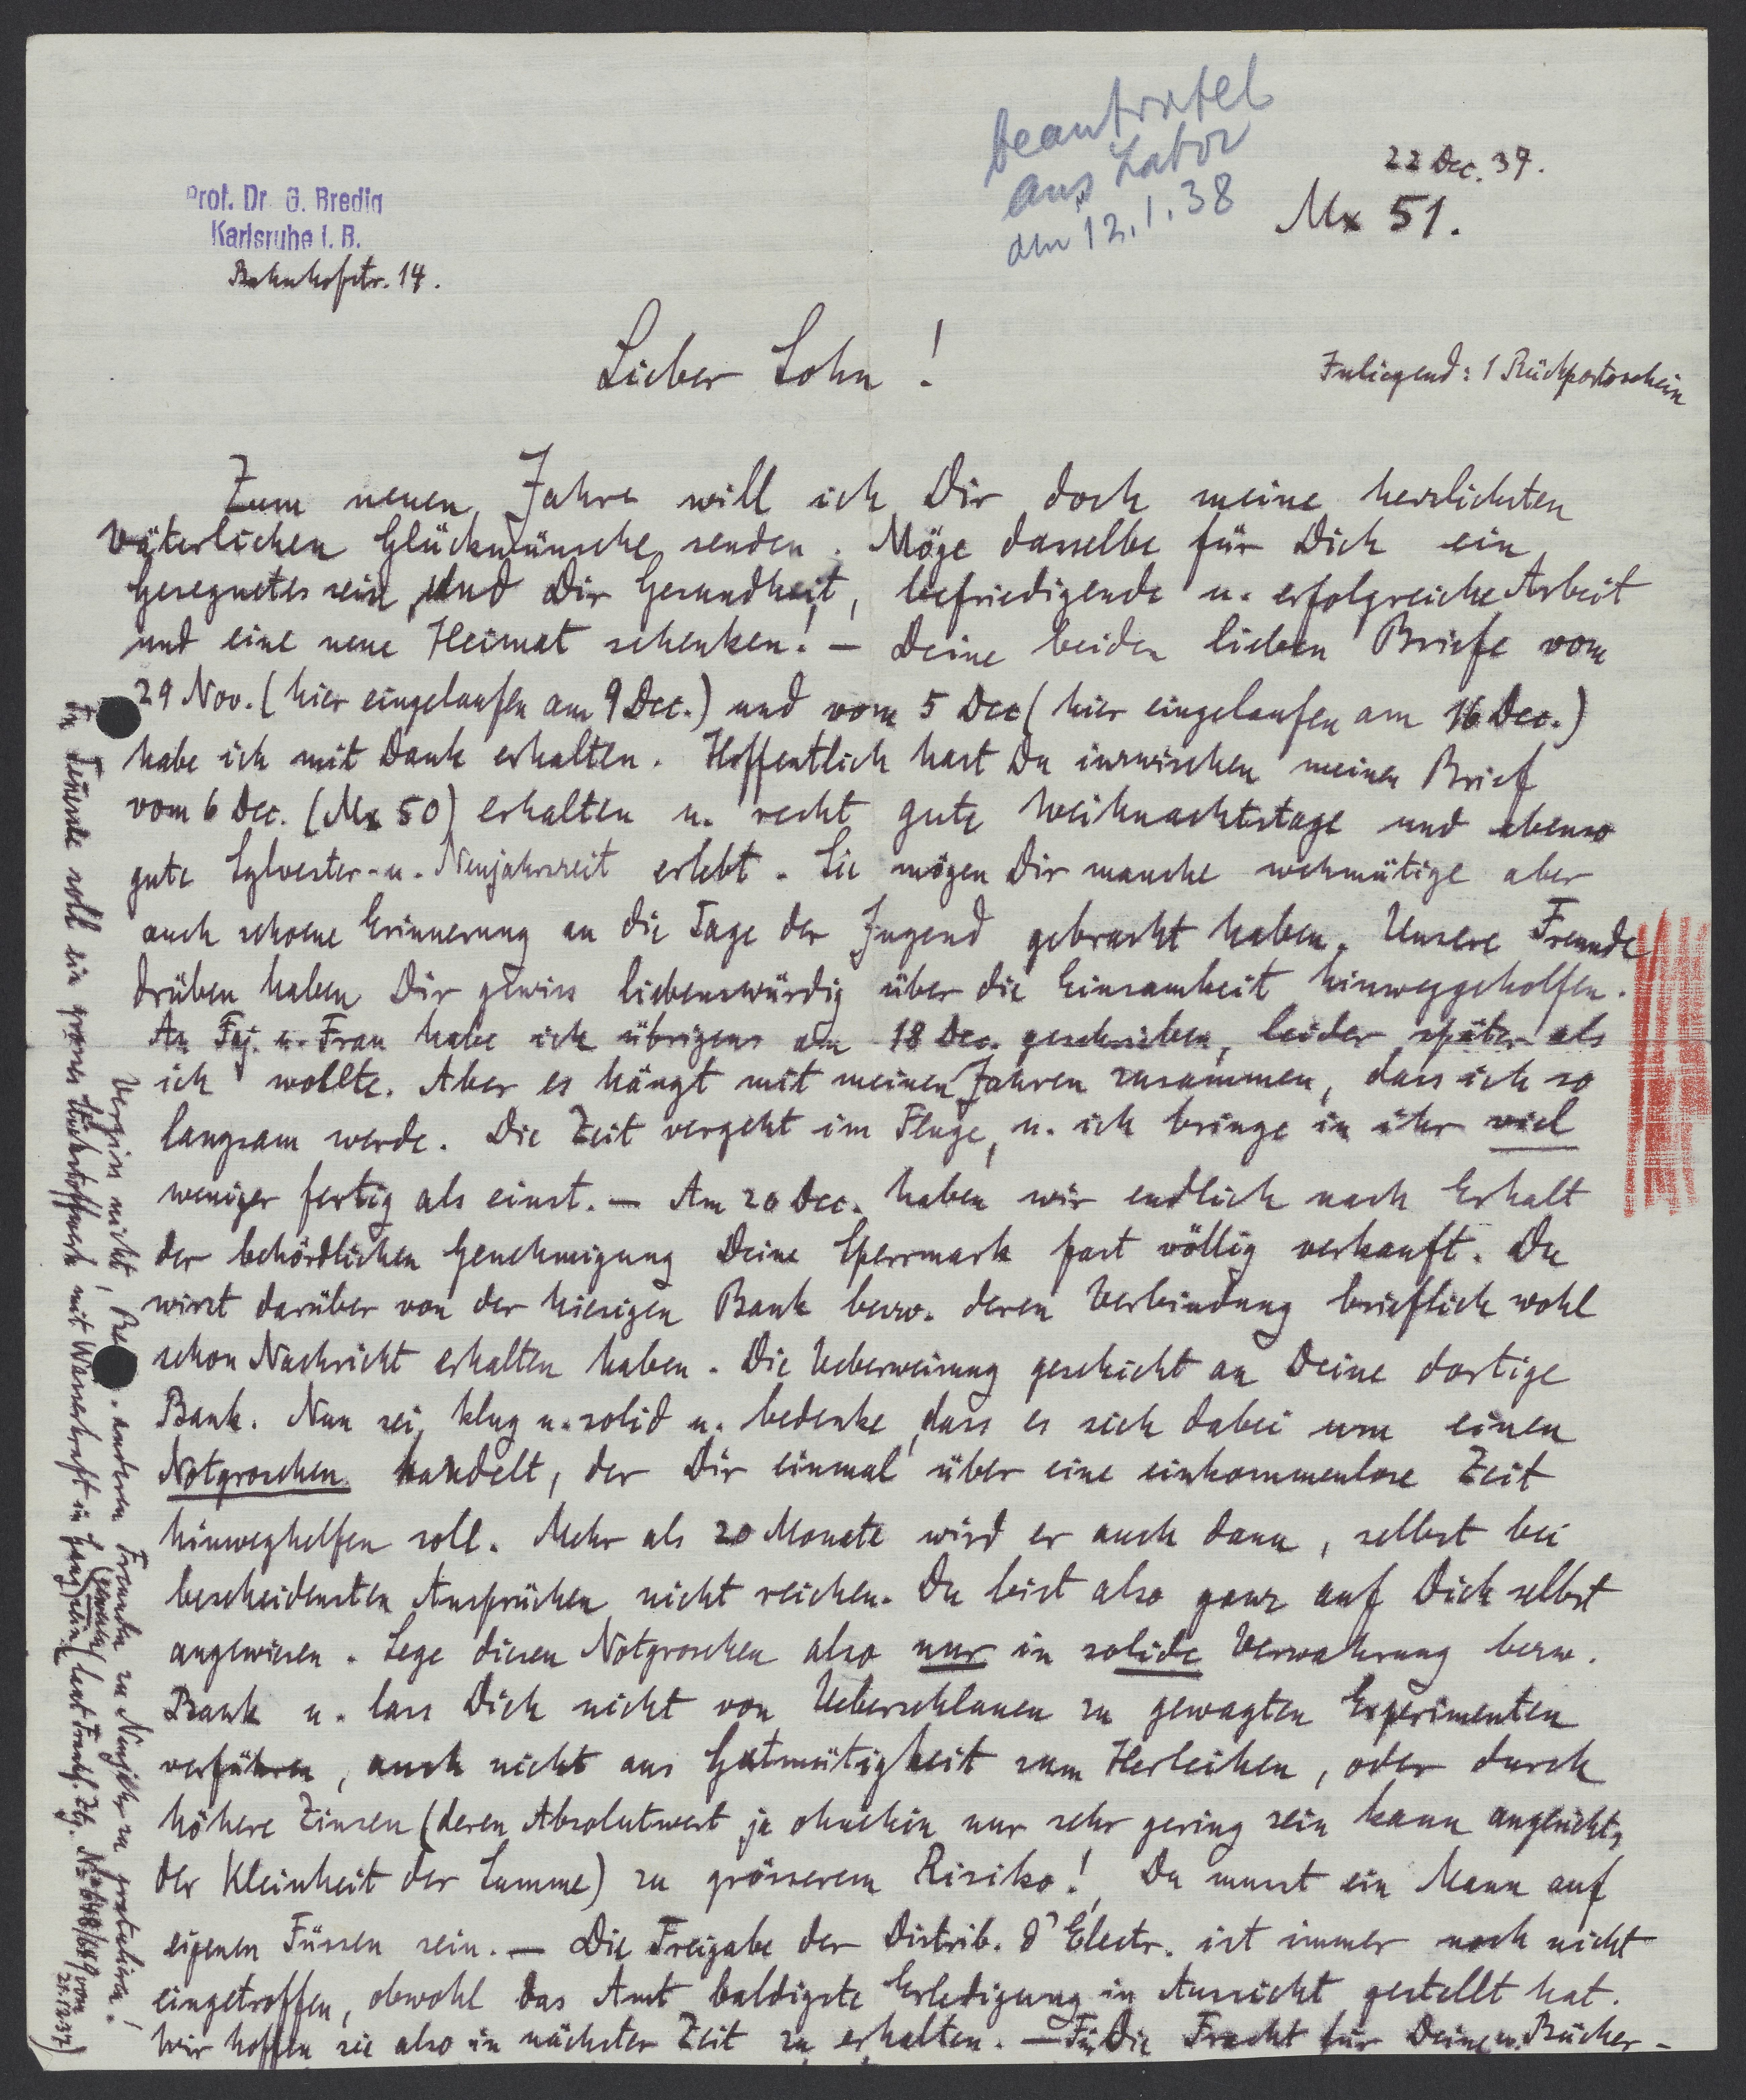 Prof. Dr. G. Bredig
Karlsruhe i. B.
Bahnhofstr. 14.
beantwortet
aus Labor
am 12.1.38
22 Dec. 37.
Mx 51.
Lieber Sohn!
Inliegend: 1 Rückportoschein
Zum neuen Jahre will ich Dir doch meine herzlichsten
väterlichen Glückwünsche senden. Möge dasselbe für Dich ein
gesegnetes sein und Dir Gesundheit, befriedigende u. erfolgreiche Arbeit
und eine neue Heimat schenken! — Deine beiden lieben Briefe vom
29 Nov. (hier eingelaufen am 9 Dec.) und vom 5 Dec (hier eingelaufen am 16 Dec.)
habe ich mit Dank erhalten. Hoffentlich hast Du inzwischen meinen Brief
vom 6 Dec. (Mx 50) erhalten u. recht gute Weihnachtstage und ebenso
gute Sylvester- u. Neujahrszeit erlebt. Sie mögen Dir manche wehmütige aber
auch schoene Erinnerung an die Tage der Jugend gebracht haben. Unsere Freunde
drüben haben Dir gewiss liebenswürdig über die Einsamkeit hinweggeholfen.
An Faj. u. Frau habe ich übrigens am 18 Dec. geschrieben, leider später als
ich wollte. Aber es hängt mit meinen Jahren zusammen, dass ich so
langsam werde. Die Zeit vergeht im Fluge, u. ich bringe in ihr viel
weniger fertig als einst. — Am 20 Dec. haben wir endlich nach Erhalt
der behördlichen Genehmigung Deine Sperrmark fast völlig verkauft. Du
wirst darüber von der hiesigen Bank bezw. deren Verbindung brieflich wohl
schon Nachricht erhalten haben. Die Ueberweisung geschieht an Deine dortige
Bank. Nun sei klug u. solid u. bedenke, dass es sich dabei um einen
Notgroschen handelt, der Dir einmal über eine einkommenlose Zeit
hinweghelfen soll. Mehr als 20 Monate wird er auch dann, selbst bei
bescheidensten Ansprüchen nicht reichen. Du bist also ganz auf Dich selbst
angewiesen. Lege diesen Notgroschen also nur in solide Verwahrung bezw.
Bank u. lass Dich nicht von Ueberschlauen zu gewagten Experimenten
verführen, auch nicht aus Gutmütigkeit zum Herleihen, oder durch
höhere Zinsen (deren Absolutwert ja ohnehin nur sehr gering sein kann angesichts
der Kleinheit der Summe) zu grösserem Risiko! Du musst ein Mann auf
eigenen Füssen sein. — Die Freigabe der Distrib. d'Electr. ist immer noch nicht
eingetroffen, obwohl das Amt baldigste Erledigung in Aussicht gestellt hat.
Wir hoffen sie also in nächster Zeit zu erhalten. — Für die Fracht für Deine Bücher-
Vergiss nicht, anderen Freunden zu Neujahr zu gratulieren!
In soll ein grosses Stickstoffwerk mit Wasserkraft in (laut Frankf. Ztg. No 648/649 vom
21.12.37)